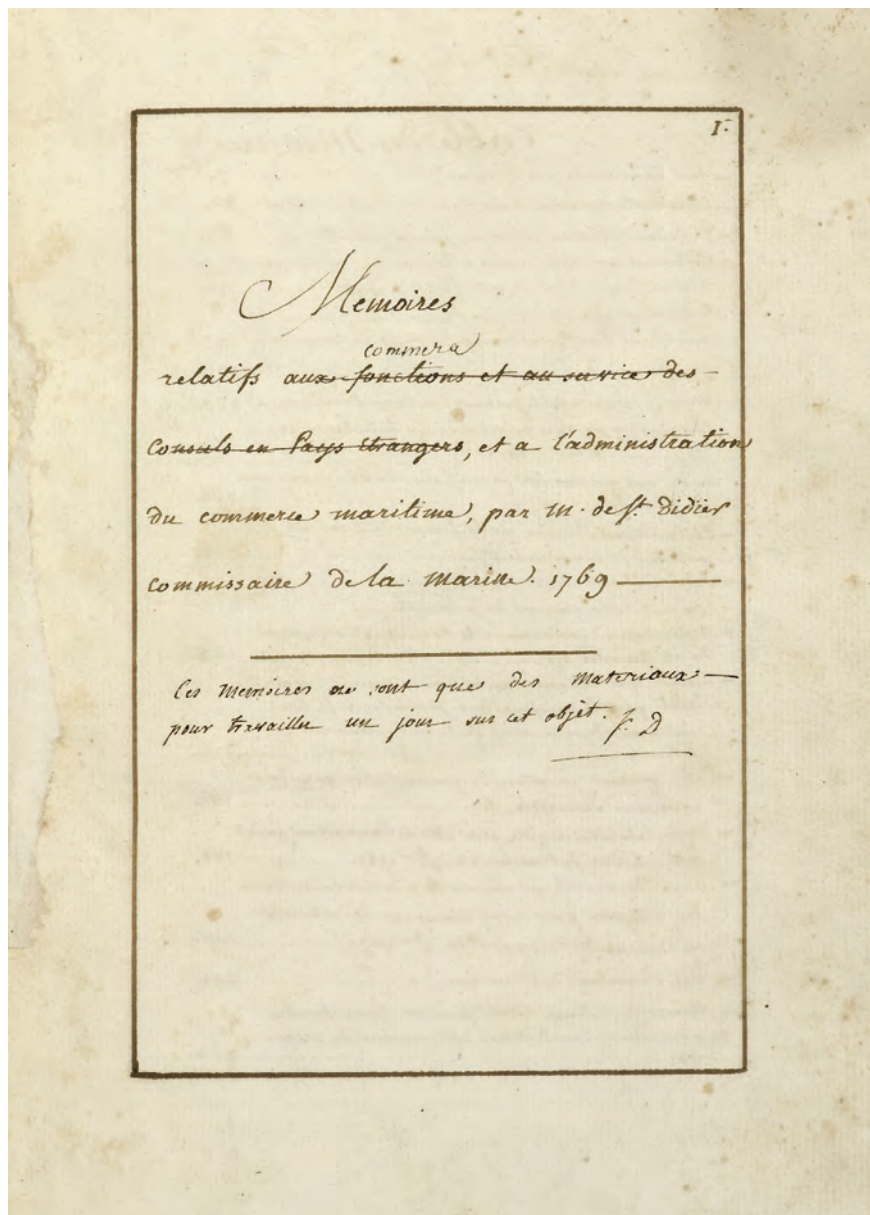 1.
Memoires
commerce
relatifs aux fonctions et au service des
Consuls en Pays Etrangers, et a l'administration
du commerce maritime, par M. de St. Didier
commissaire de la marine. 1769
Ces memoires ne sont que des materiaux
pour travailler un jour sur cet objèt. S. D